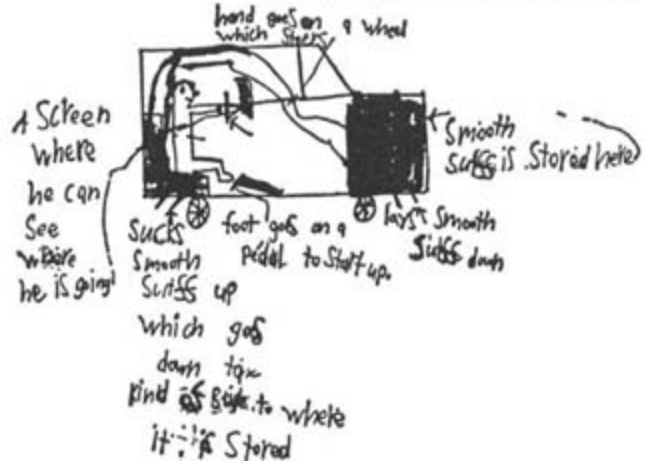 hand goes on a wheel
which steers
A Screen
where
he can
See
where
he is going
Smooth
suffs is Stored here
sucks
Smooth
Suffs up
which gos
down
kind of to where
it is Stored
foot gos on a
Pedal to Start up.
lays Smooth
Suffs down